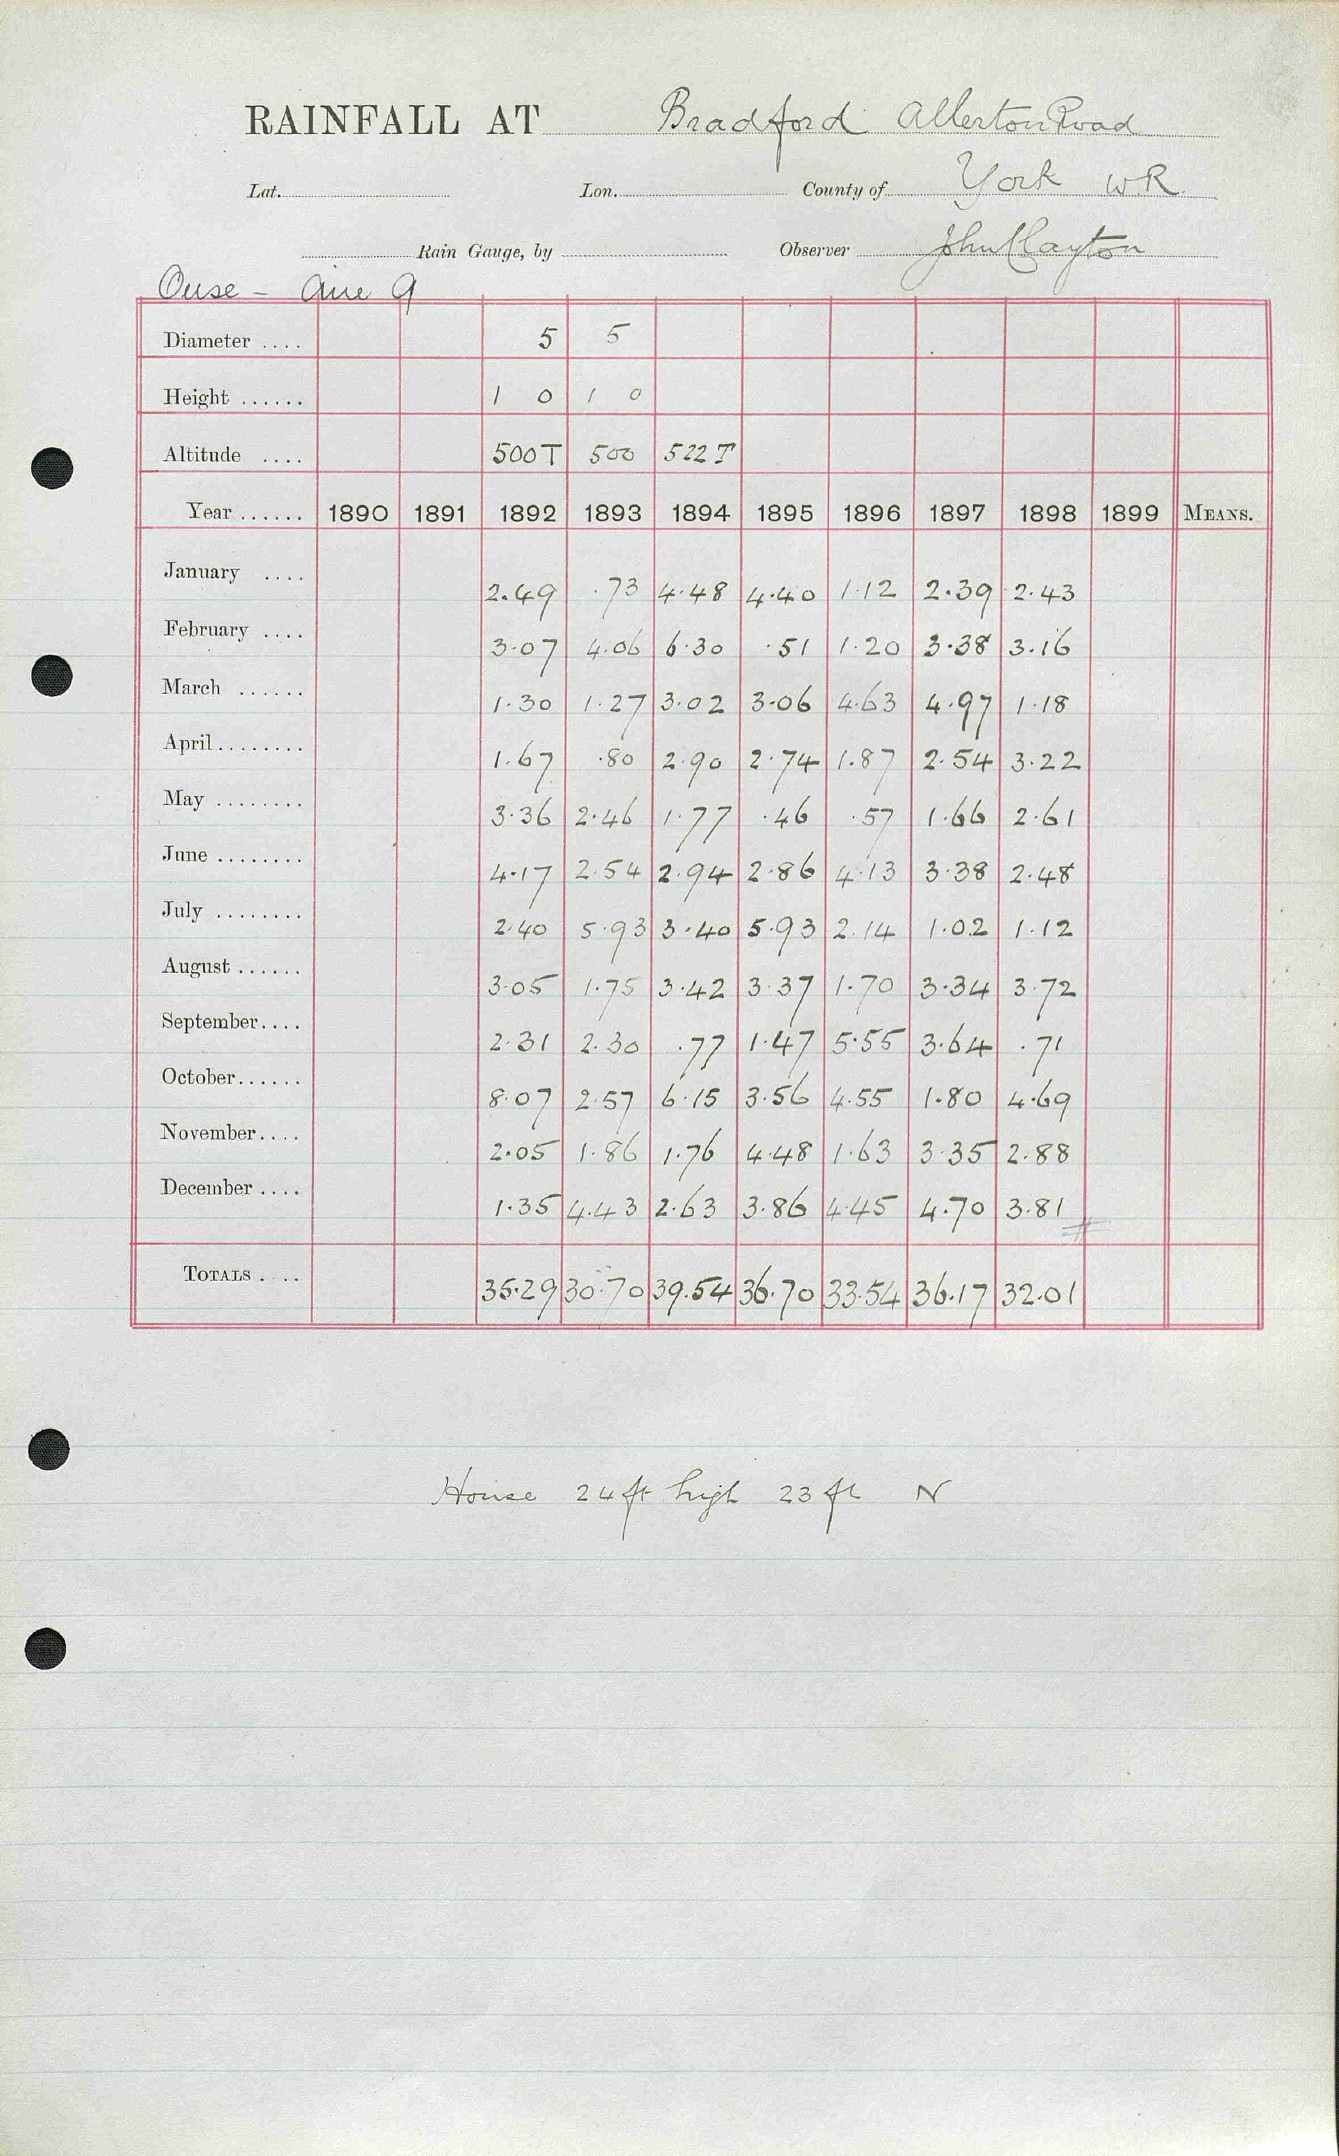 RAINFALL AT Bradford Allerton Road
Lat. Lon. County of York WR
Rain Gauge, by Observer John Clayton
Ouse - Aire 9
Diameter .... 5 5
Height ...... 1 0 1 0
Altitude .... 500T 500 522T
Year ...... 1890 1891 1892 1893 1894 1895 1896 1897 1898 1899 MEANS.
January .... 2.49 .73 4.48 4.40 1.12 2.39 2.43
February .... 3.07 4.06 6.30 .51 1.20 3.38 3.16
March ...... 1.30 1.27 3.02 3.06 4.63 4.97 1.18
April ........ 1.67 .80 2.90 2.74 1.87 2.54 3.22
May ........ 3.36 2.46 1.77 .46 .57 1.66 2.61
June ........ 4.17 2.54 2.94 2.86 4.13 3.38 2.48
July ........ 2.40 5.93 3.40 5.93 2.14 1.02 1.12
August ...... 3.05 1.75 3.42 3.37 1.70 3.34 3.72
September.... 2.31 2.30 .77 1.47 5.55 3.64 .71
October...... 8.07 2.57 6.15 3.56 4.55 1.80 4.69
November.... 2.05 1.86 1.76 4.48 1.63 3.35 2.88
December .... 1.35 4.43 2.63 3.86 4.45 4.70 3.81
TOTALS .... 35.29 30.70 39.54 36.70 33.54 36.17 32.01
House 24ft high 23ft N